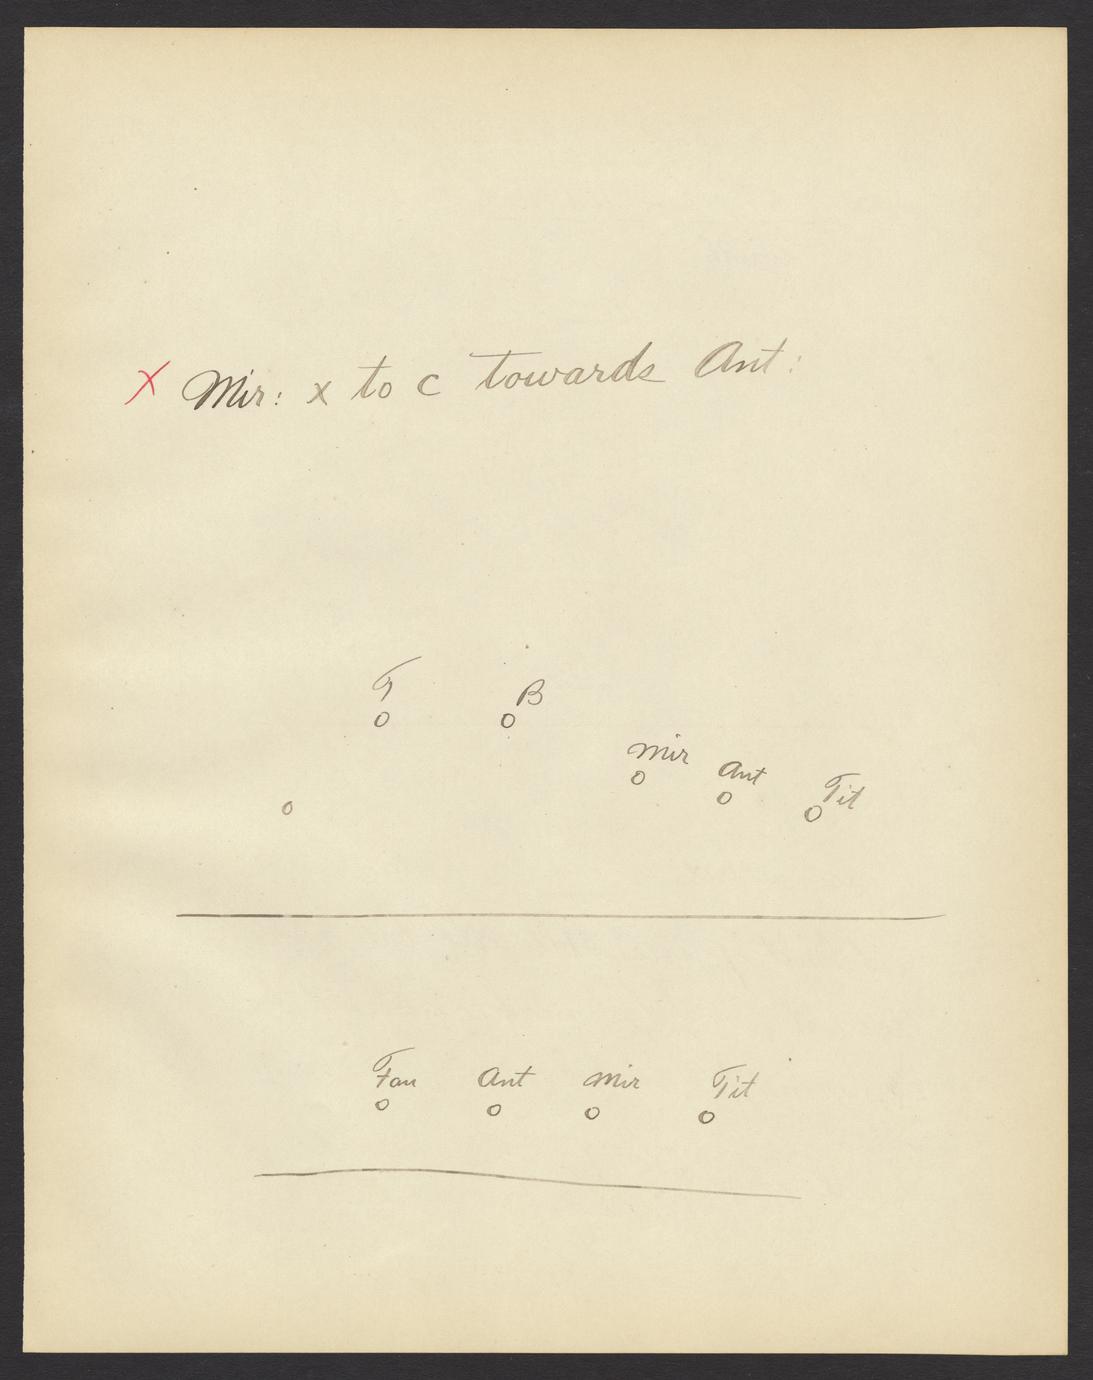 x Mir: x to c towards Ant:
F B
Mir Ant Tit
Fan Ant Mir Tit